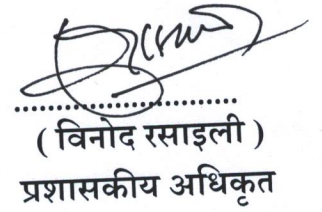 ........................
( विनोद रसाइली )
प्रशासकीय अधिकृत